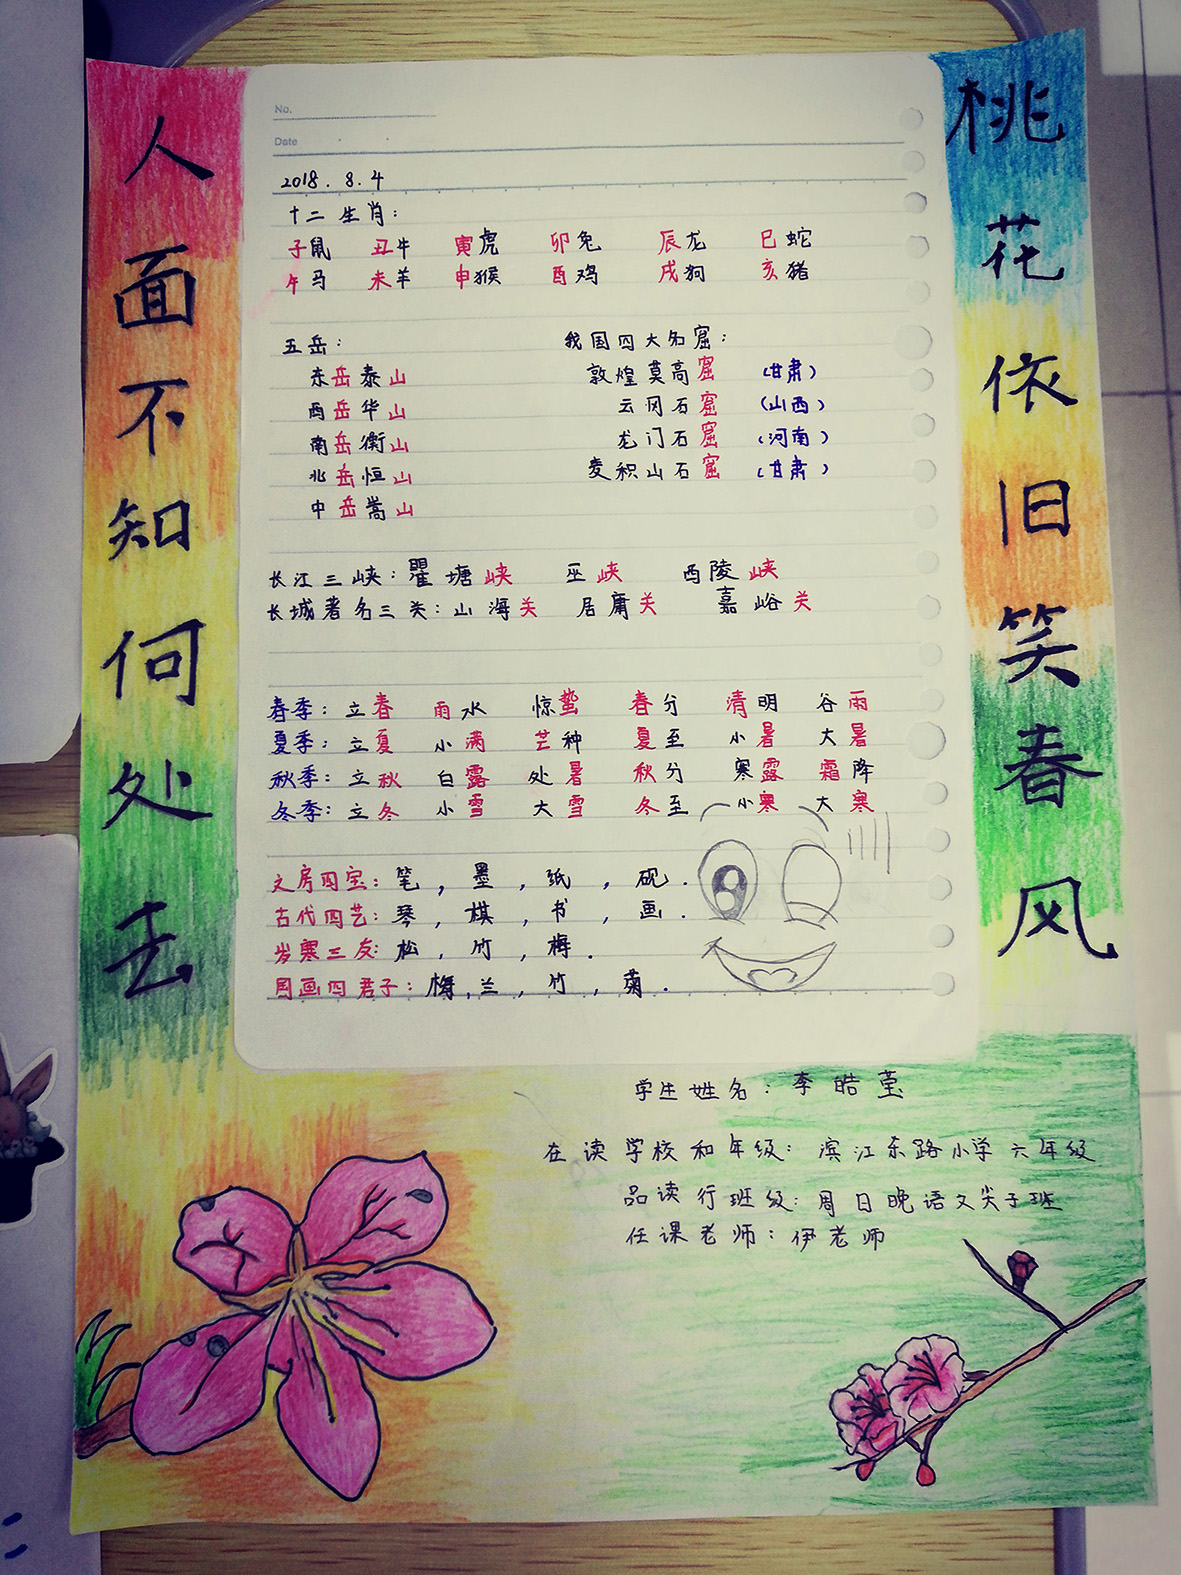 人面不知何处去
桃花依旧笑春风
No.
Date
2018.8.4
十二生肖:
子鼠 丑牛 寅虎 卯兔 辰龙 巳蛇
午马 未羊 申猴 酉鸡 戌狗 亥猪
五岳:
东岳泰山
西岳华山
南岳衡山
北岳恒山
中岳嵩山
我国四大名窟:
敦煌莫高窟 (甘肃)
云冈石窟 (山西)
龙门石窟 (河南)
麦积山石窟 (甘肃)
长江三峡:瞿塘峡 巫峡 西陵峡
长城著名三关:山海关 居庸关 嘉峪关
春季:立春 雨水 惊蛰 春分 清明 谷雨
夏季:立夏 小满 芒种 夏至 小暑 大暑
秋季:立秋 白露 处暑 秋分 寒露 霜降
冬季:立冬 小雪 大雪 冬至 小寒 大寒
文房四宝:笔,墨,纸,砚.
古代四艺:琴,棋,书,画.
岁寒三友:松,竹,梅.
国画四君子:梅,兰,竹,菊.
学生姓名:李皓莹
在读学校和年级:滨江东路小学六年级
品读行班级:周日晚语文尖子班
任课老师:伊老师